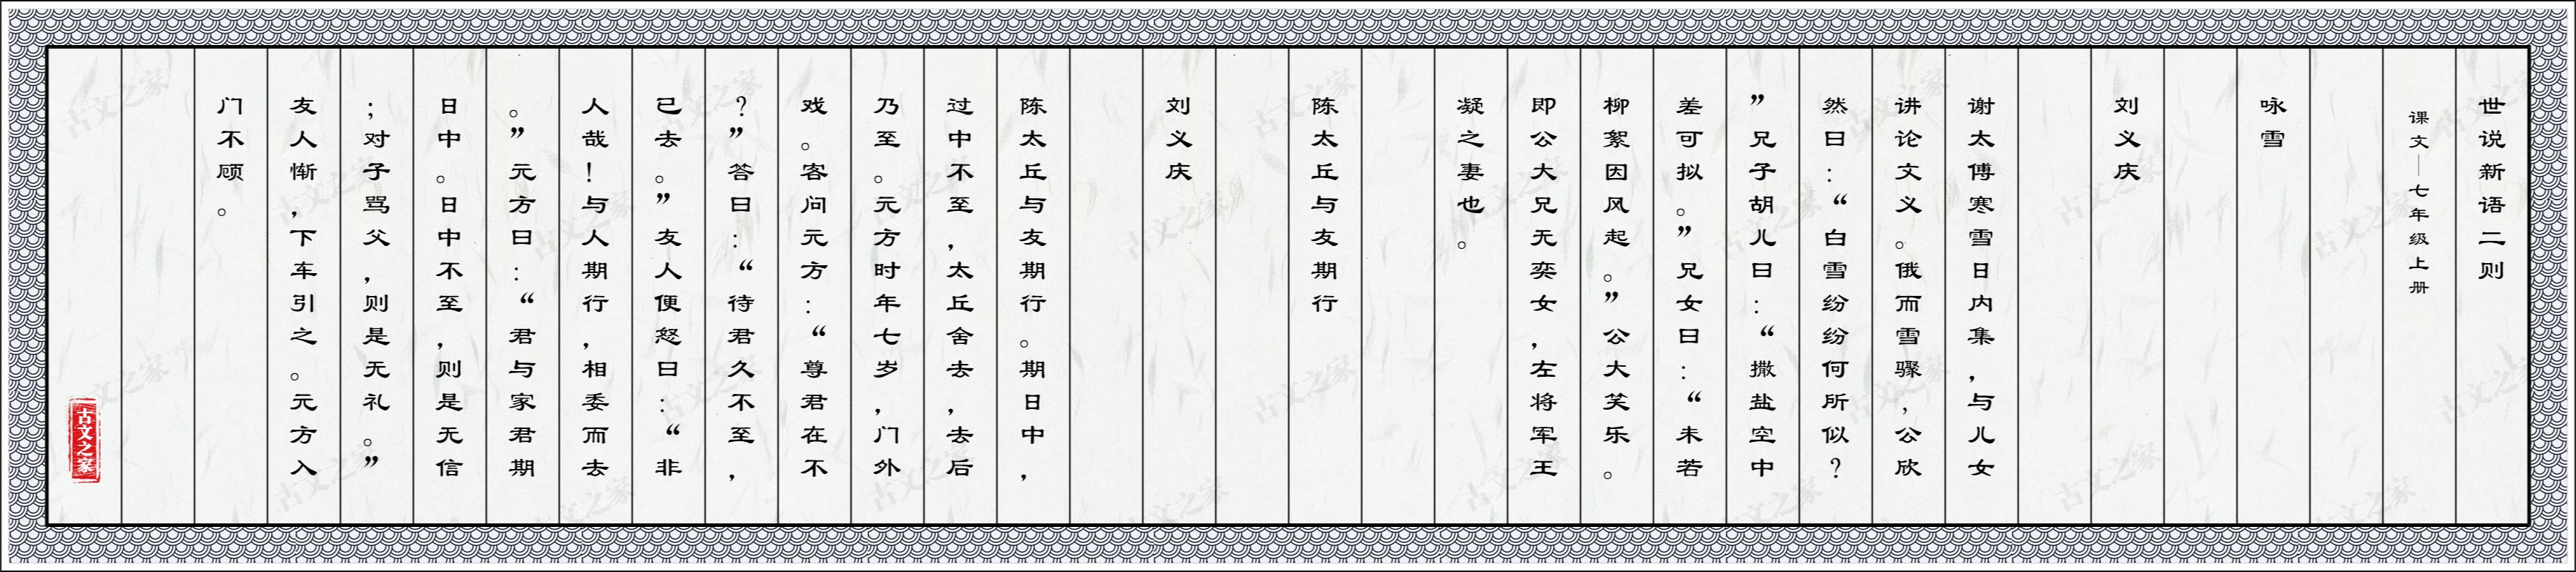 世说新语二则
课文—七年级上册
咏雪
刘义庆
谢太傅寒雪日内集，与儿女
讲论文义。俄而雪骤，公欣
然曰：“白雪纷纷何所似？
”兄子胡儿曰：“撒盐空中
差可拟。”兄女曰：“未若
柳絮因风起。”公大笑乐。
即公大兄无奕女，左将军王
凝之妻也。
陈太丘与友期行
刘义庆
陈太丘与友期行。期日中，
过中不至，太丘舍去，去后
乃至。元方时年七岁，门外
戏。客问元方：“尊君在不
？”答曰：“待君久不至，
已去。”友人便怒曰：“非
人哉！与人期行，相委而去
。”元方曰：“君与家君期
日中。日中不至，则是无信
；对子骂父，则是无礼。”
友人惭，下车引之。元方入
门不顾。
古文之家